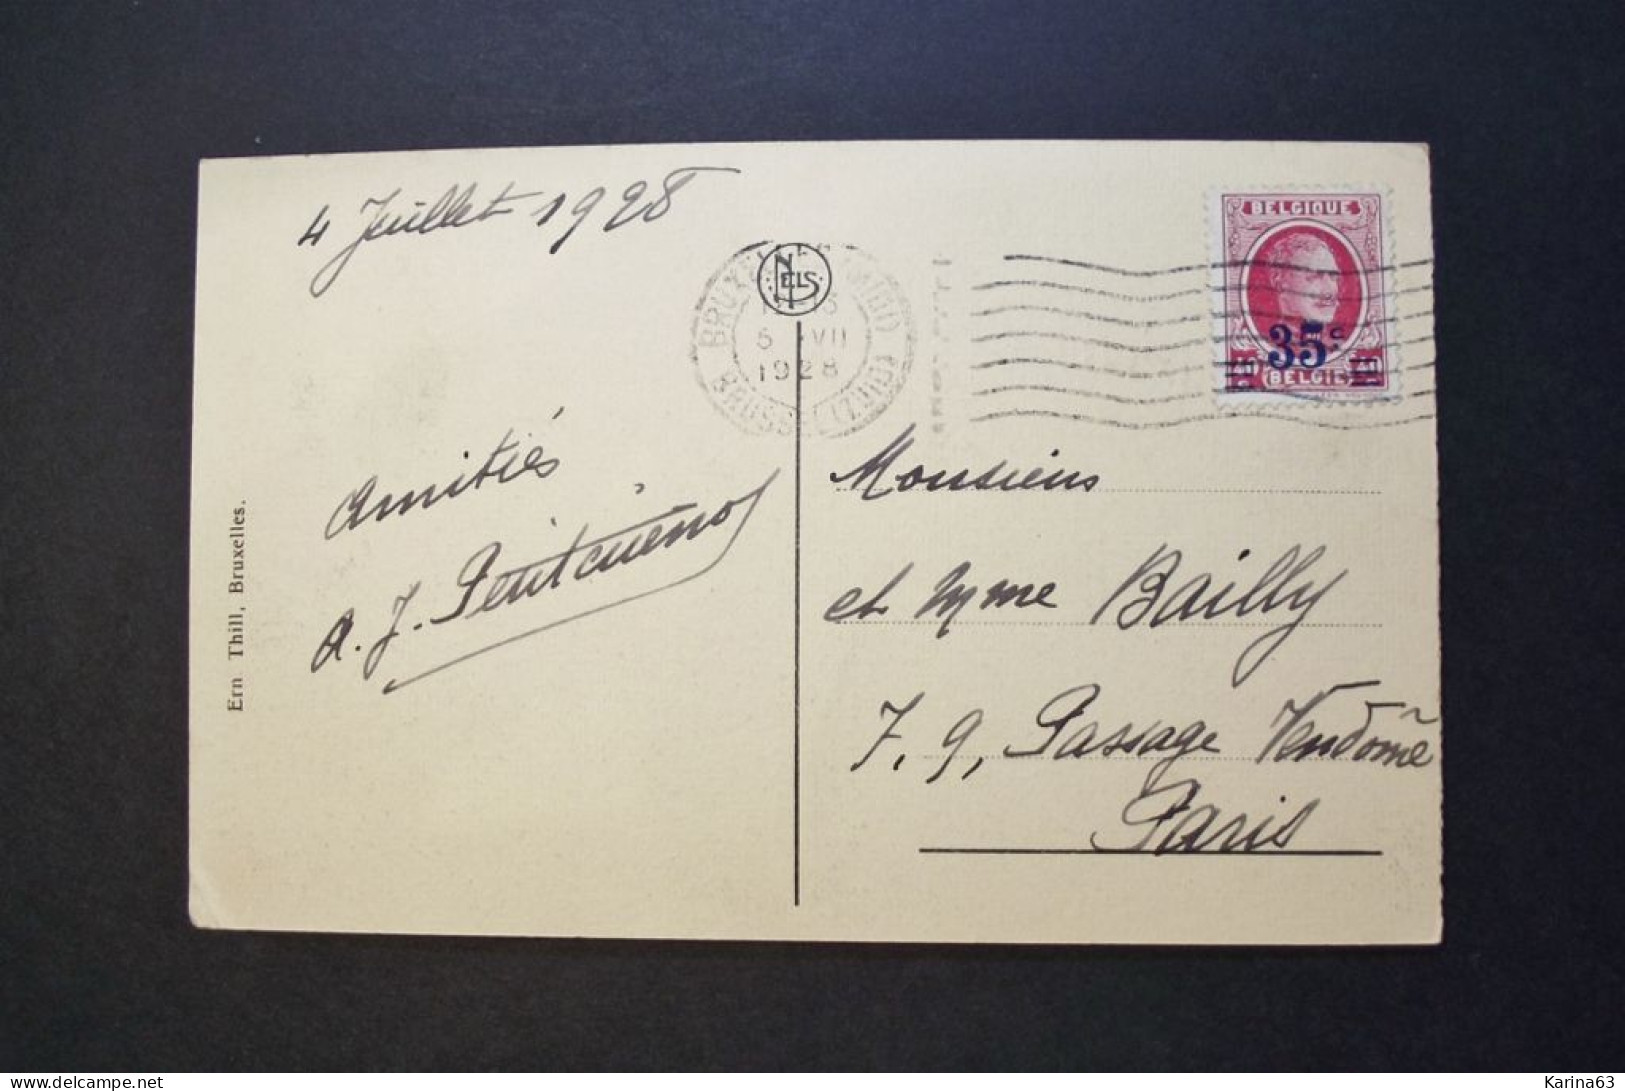 4 Juillet 1928
NELS
BRUXELLES (MIDI)
5 VII
1928
BRUSSEL (ZUID)
BELGIQUE
35c
BELGIË
Amitiés
A. J.
Monsieur
et Mme Bailly
7, 9, Passage Vendôme
Paris
Ern Thill, Bruxelles.
delcampe.net
Karina63